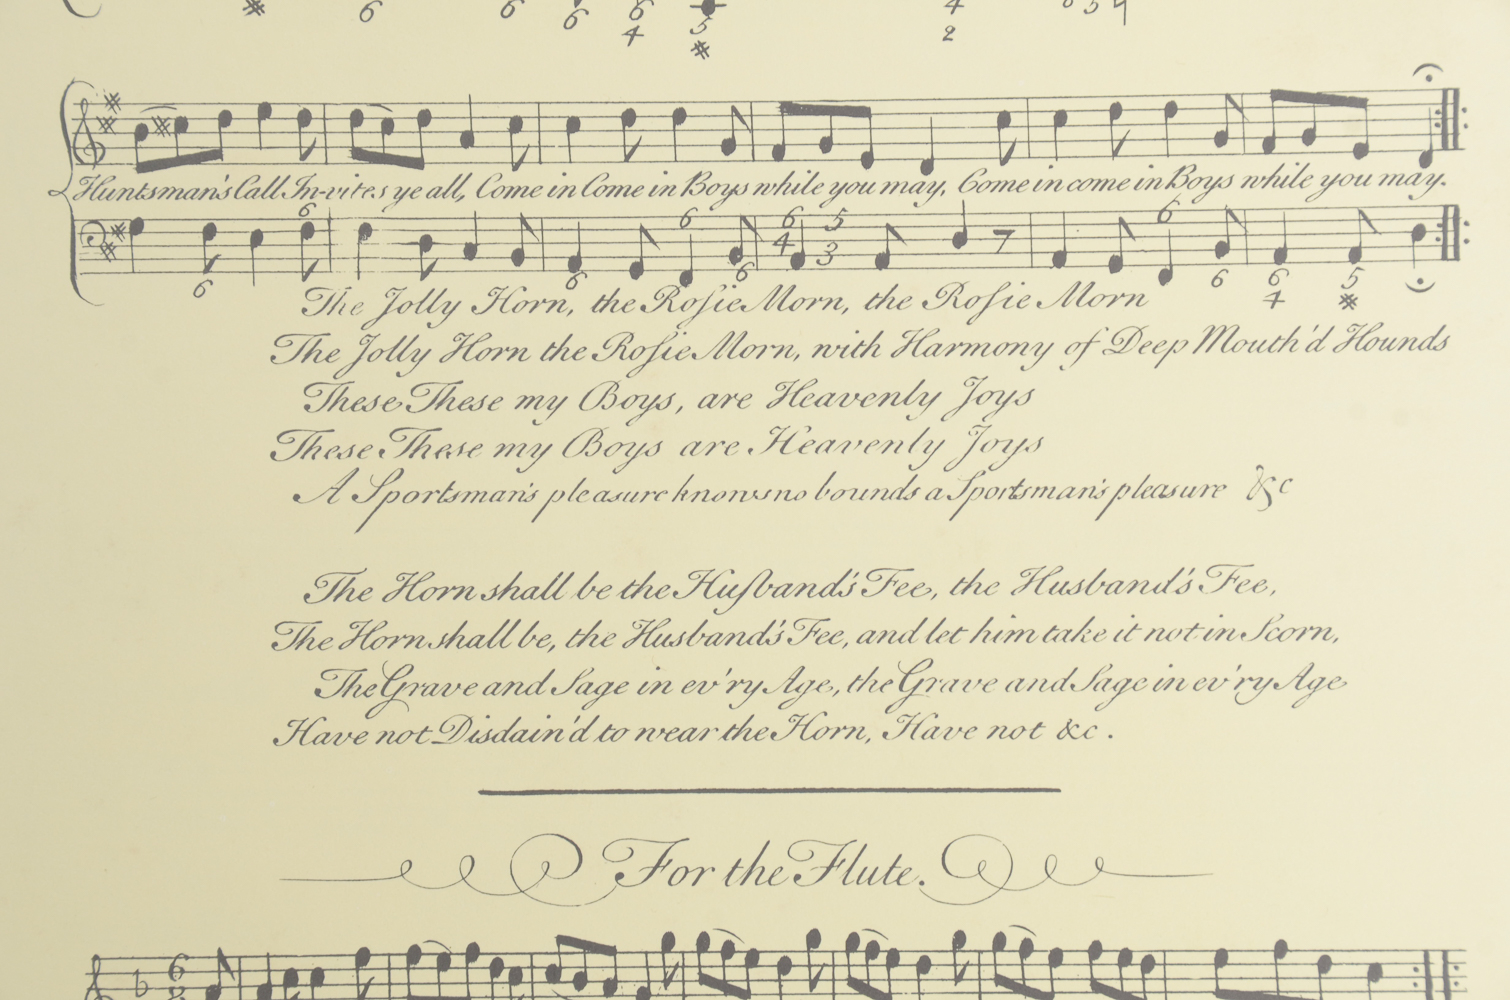 Huntsman's Call In-vites ye all, Come in Come in Boys while you may, Come in come in Boys while you may.
The Jolly Horn, the Roſie Morn, the Roſie Morn
The Jolly Horn the Roſie Morn, with Harmony of Deep Mouth'd Hounds
These These my Boys, are Heavenly Joys
These These my Boys are Heavenly Joys
A Sportsman's pleasure knows no bounds a Sportsman's pleasure &c
The Horn shall be the Huſband's Fee, the Husband's Fee,
The Horn shall be, the Husband's Fee, and let him take it not in Scorn,
The Grave and Sage in ev'ry Age, the Grave and Sage in ev'ry Age
Have not Disdain'd to wear the Horn, Have not &c.
For the Flute.